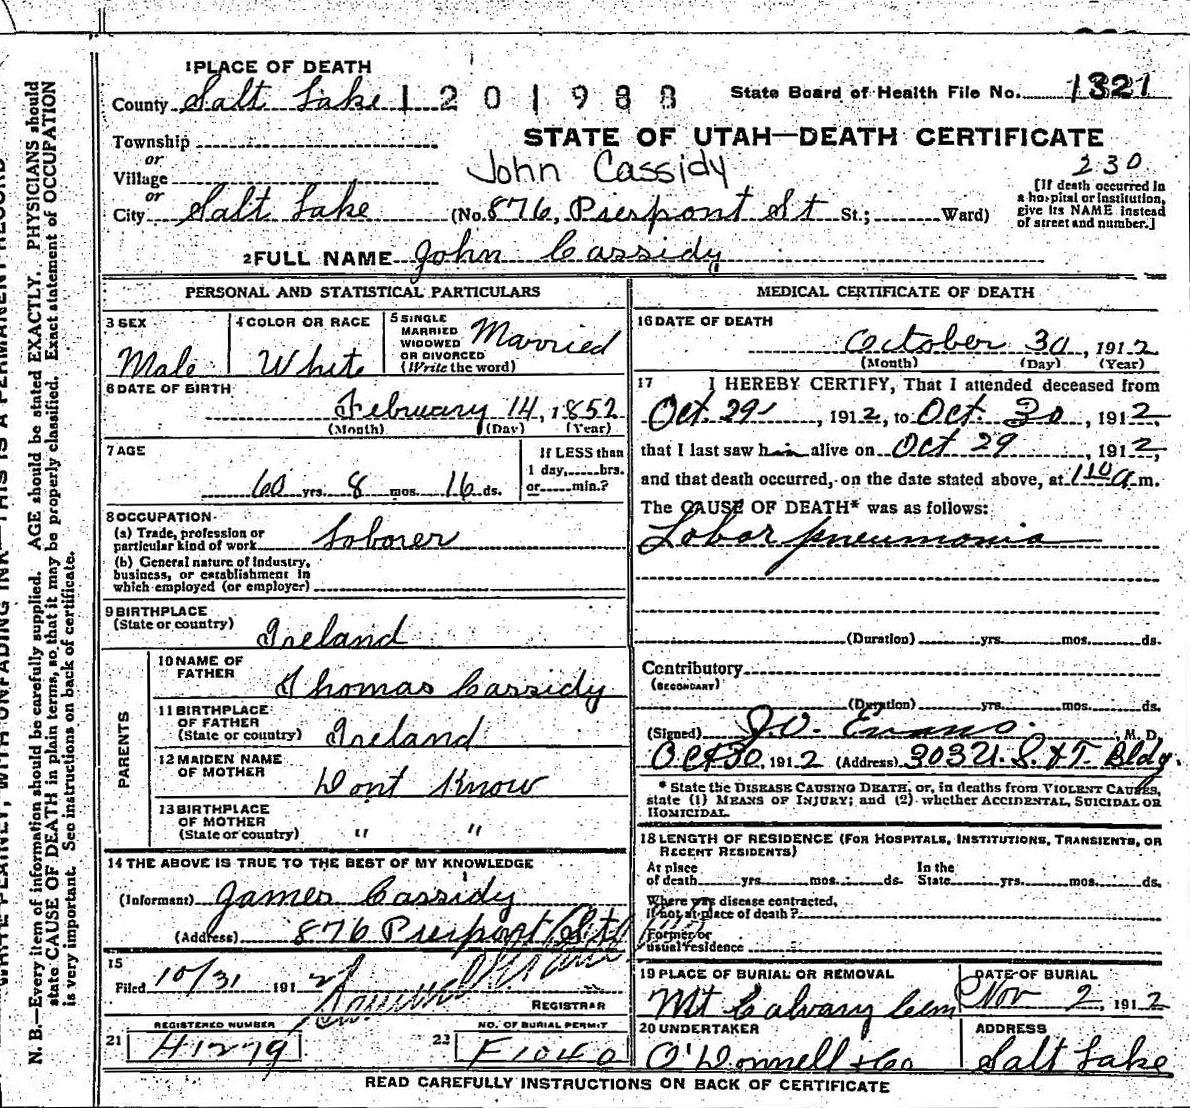 1 PLACE OF DEATH
County Salt Lake 1 2 0 1 9 8 8 State Board of Health File No. 1321
STATE OF UTAH—DEATH CERTIFICATE
Township
or
Village
John Cassidy
230
or
City Salt Lake (No. 876, Pierpont St St.; Ward)
[If death occurred in
a hospital or institution,
give its NAME instead
of street and number.]
2 FULL NAME John Cassidy
PERSONAL AND STATISTICAL PARTICULARS
3 SEX
Male
4 COLOR OR RACE
White
5 SINGLE
MARRIED
WIDOWED
OR DIVORCED
(Write the word)
Married
6 DATE OF BIRTH
February 14, 1852
(Month) (Day) (Year)
7 AGE
60 yrs. 8 mos. 16 ds.
If LESS than
1 day, hrs.
or min.?
8 OCCUPATION
(a) Trade, profession or
particular kind of work Laborer
(b) General nature of industry,
business, or establishment in
which employed (or employer)
9 BIRTHPLACE
(State or country) Ireland
PARENTS
10 NAME OF
FATHER
Thomas Cassidy
11 BIRTHPLACE
OF FATHER
(State or country) Ireland
12 MAIDEN NAME
OF MOTHER
Dont Know
13 BIRTHPLACE
OF MOTHER
(State or country) " "
14 THE ABOVE IS TRUE TO THE BEST OF MY KNOWLEDGE
(Informant) James Cassidy
(Address) 876 Pierpont St
15
Filed 10/31 191 2
REGISTRAR
REGISTERED NUMBER
21 H1279
NO. OF BURIAL PERMIT
22 F1040
MEDICAL CERTIFICATE OF DEATH
16 DATE OF DEATH
October 30, 1912
(Month) (Day) (Year)
17 I HEREBY CERTIFY, That I attended deceased from
Oct. 29, 1912, to Oct. 30, 1912,
that I last saw him alive on Oct 29, 1912,
and that death occurred, on the date stated above, at 1 10 a m.
The CAUSE OF DEATH* was as follows:
Lobar pneumonia
(Duration) yrs. mos. ds.
Contributory
(SECONDARY)
(Duration) yrs. mos. ds.
(Signed) J.O. Evans, M. D.
Oct 30, 1912 (Address)
Bldg.
* State the DISEASE CAUSING DEATH, or, in deaths from VIOLENT CAUSES,
state (1) MEANS OF INJURY; and (2) whether ACCIDENTAL, SUICIDAL OR
HOMICIDAL.
18 LENGTH OF RESIDENCE (FOR HOSPITALS, INSTITUTIONS, TRANSIENTS, OR
RECENT RESIDENTS)
At place
of death yrs. mos. ds.
In the
State yrs. mos. ds.
Where was disease contracted,
if not at place of death?
Former or
usual residence
19 PLACE OF BURIAL OR REMOVAL
Mt Calvary Cem
DATE OF BURIAL
Nov 2, 1912
20 UNDERTAKER
O'Donnell & Co
ADDRESS
Salt Lake
READ CAREFULLY INSTRUCTIONS ON BACK OF CERTIFICATE
WRITE PLAINLY, WITH UNFADING INK—THIS IS A PERMANENT RECORD
N. B.—Every item of information should be carefully supplied. AGE should be stated EXACTLY. PHYSICIANS should
state CAUSE OF DEATH in plain terms, so that it may be properly classified. Exact statement of OCCUPATION
is very important. See instructions on back of certificate.